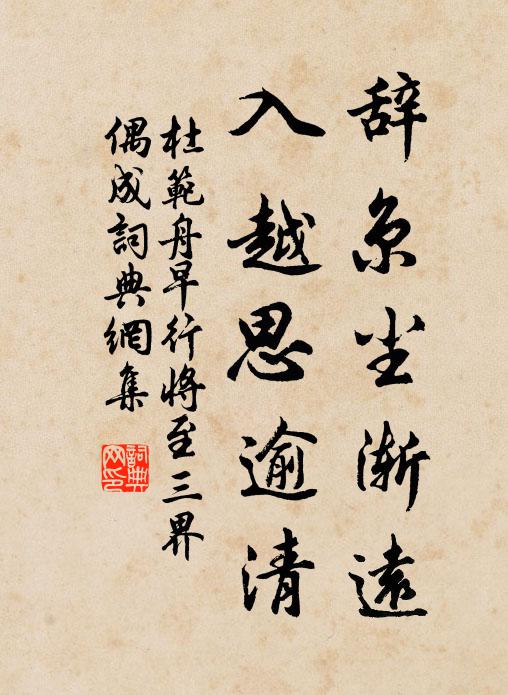 辞京尘渐遠
入越思逾清
杜範舟早行将至三界
偶成詞典網集
詞典网印